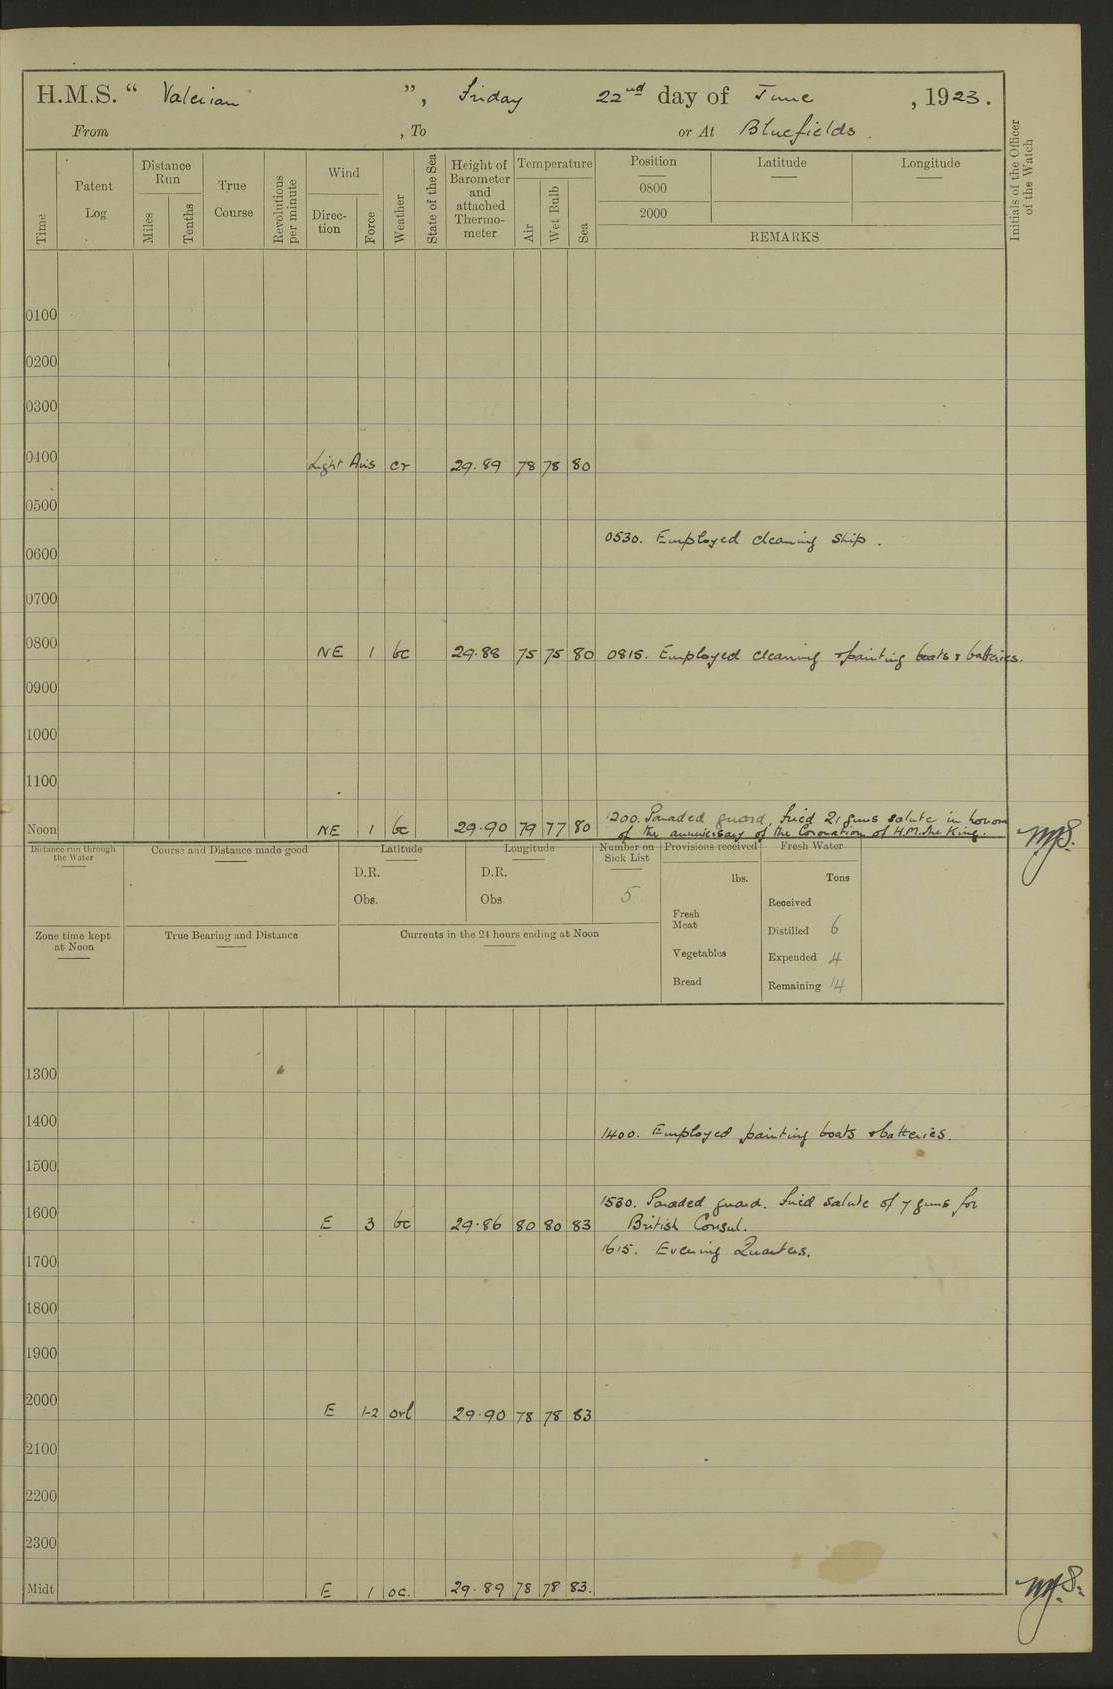 H.M.S. “ Valerian ”, Friday 22nd day of June , 1923.
From , To or At Bluefields.
Time
Patent Log
Distance Run
Miles
Tenths
True Course
Revolutions per minute
Wind
Direc-tion
Force
Weather
State of the Sea
Height of Barometer and attached Thermo-meter
Temperature
Air
Wet Bulb
Sea
Position
Latitude
Longitude
0800
2000
REMARKS
Initials of the Officer of the Watch
0100
0200
0300
0400 Light Airs cr 29.89 78 78 80
0500
0530. Employed cleaning ship.
0600
0700
0800 NE 1 bc 29.88 75 75 80 0815. Employed cleaning & painting boats & batteries.
0900
1000
1100
1200. Paraded guard, fired 21 guns salute in honour
Noon NE 1 bc 29.90 79 77 80 of the anniversary of the Coronation of H.M. the King.
Distance run through the Water
Course and Distance made good
Latitude
D.R.
Obs.
Longitude
D.R.
Obs.
Number on Sick List
5
Provisions received
lbs.
Fresh Meat
Vegetables
Bread
Fresh Water
Tons
Received
Distilled 6
Expended 4
Remaining 14
Zone time kept at Noon
True Bearing and Distance
Currents in the 24 hours ending at Noon
1300
1400
1400. Employed painting boats & batteries.
1500
1530. Paraded guard. Fired salute of 7 guns for
1600 E 3 bc 29.86 80 80 83 British Consul.
1615. Evening Quarters.
1700
1800
1900
2000 E 1-2 orl 29.90 78 78 83
2100
2200
2300
Midt E 1 oc. 29.89 78 78 83.